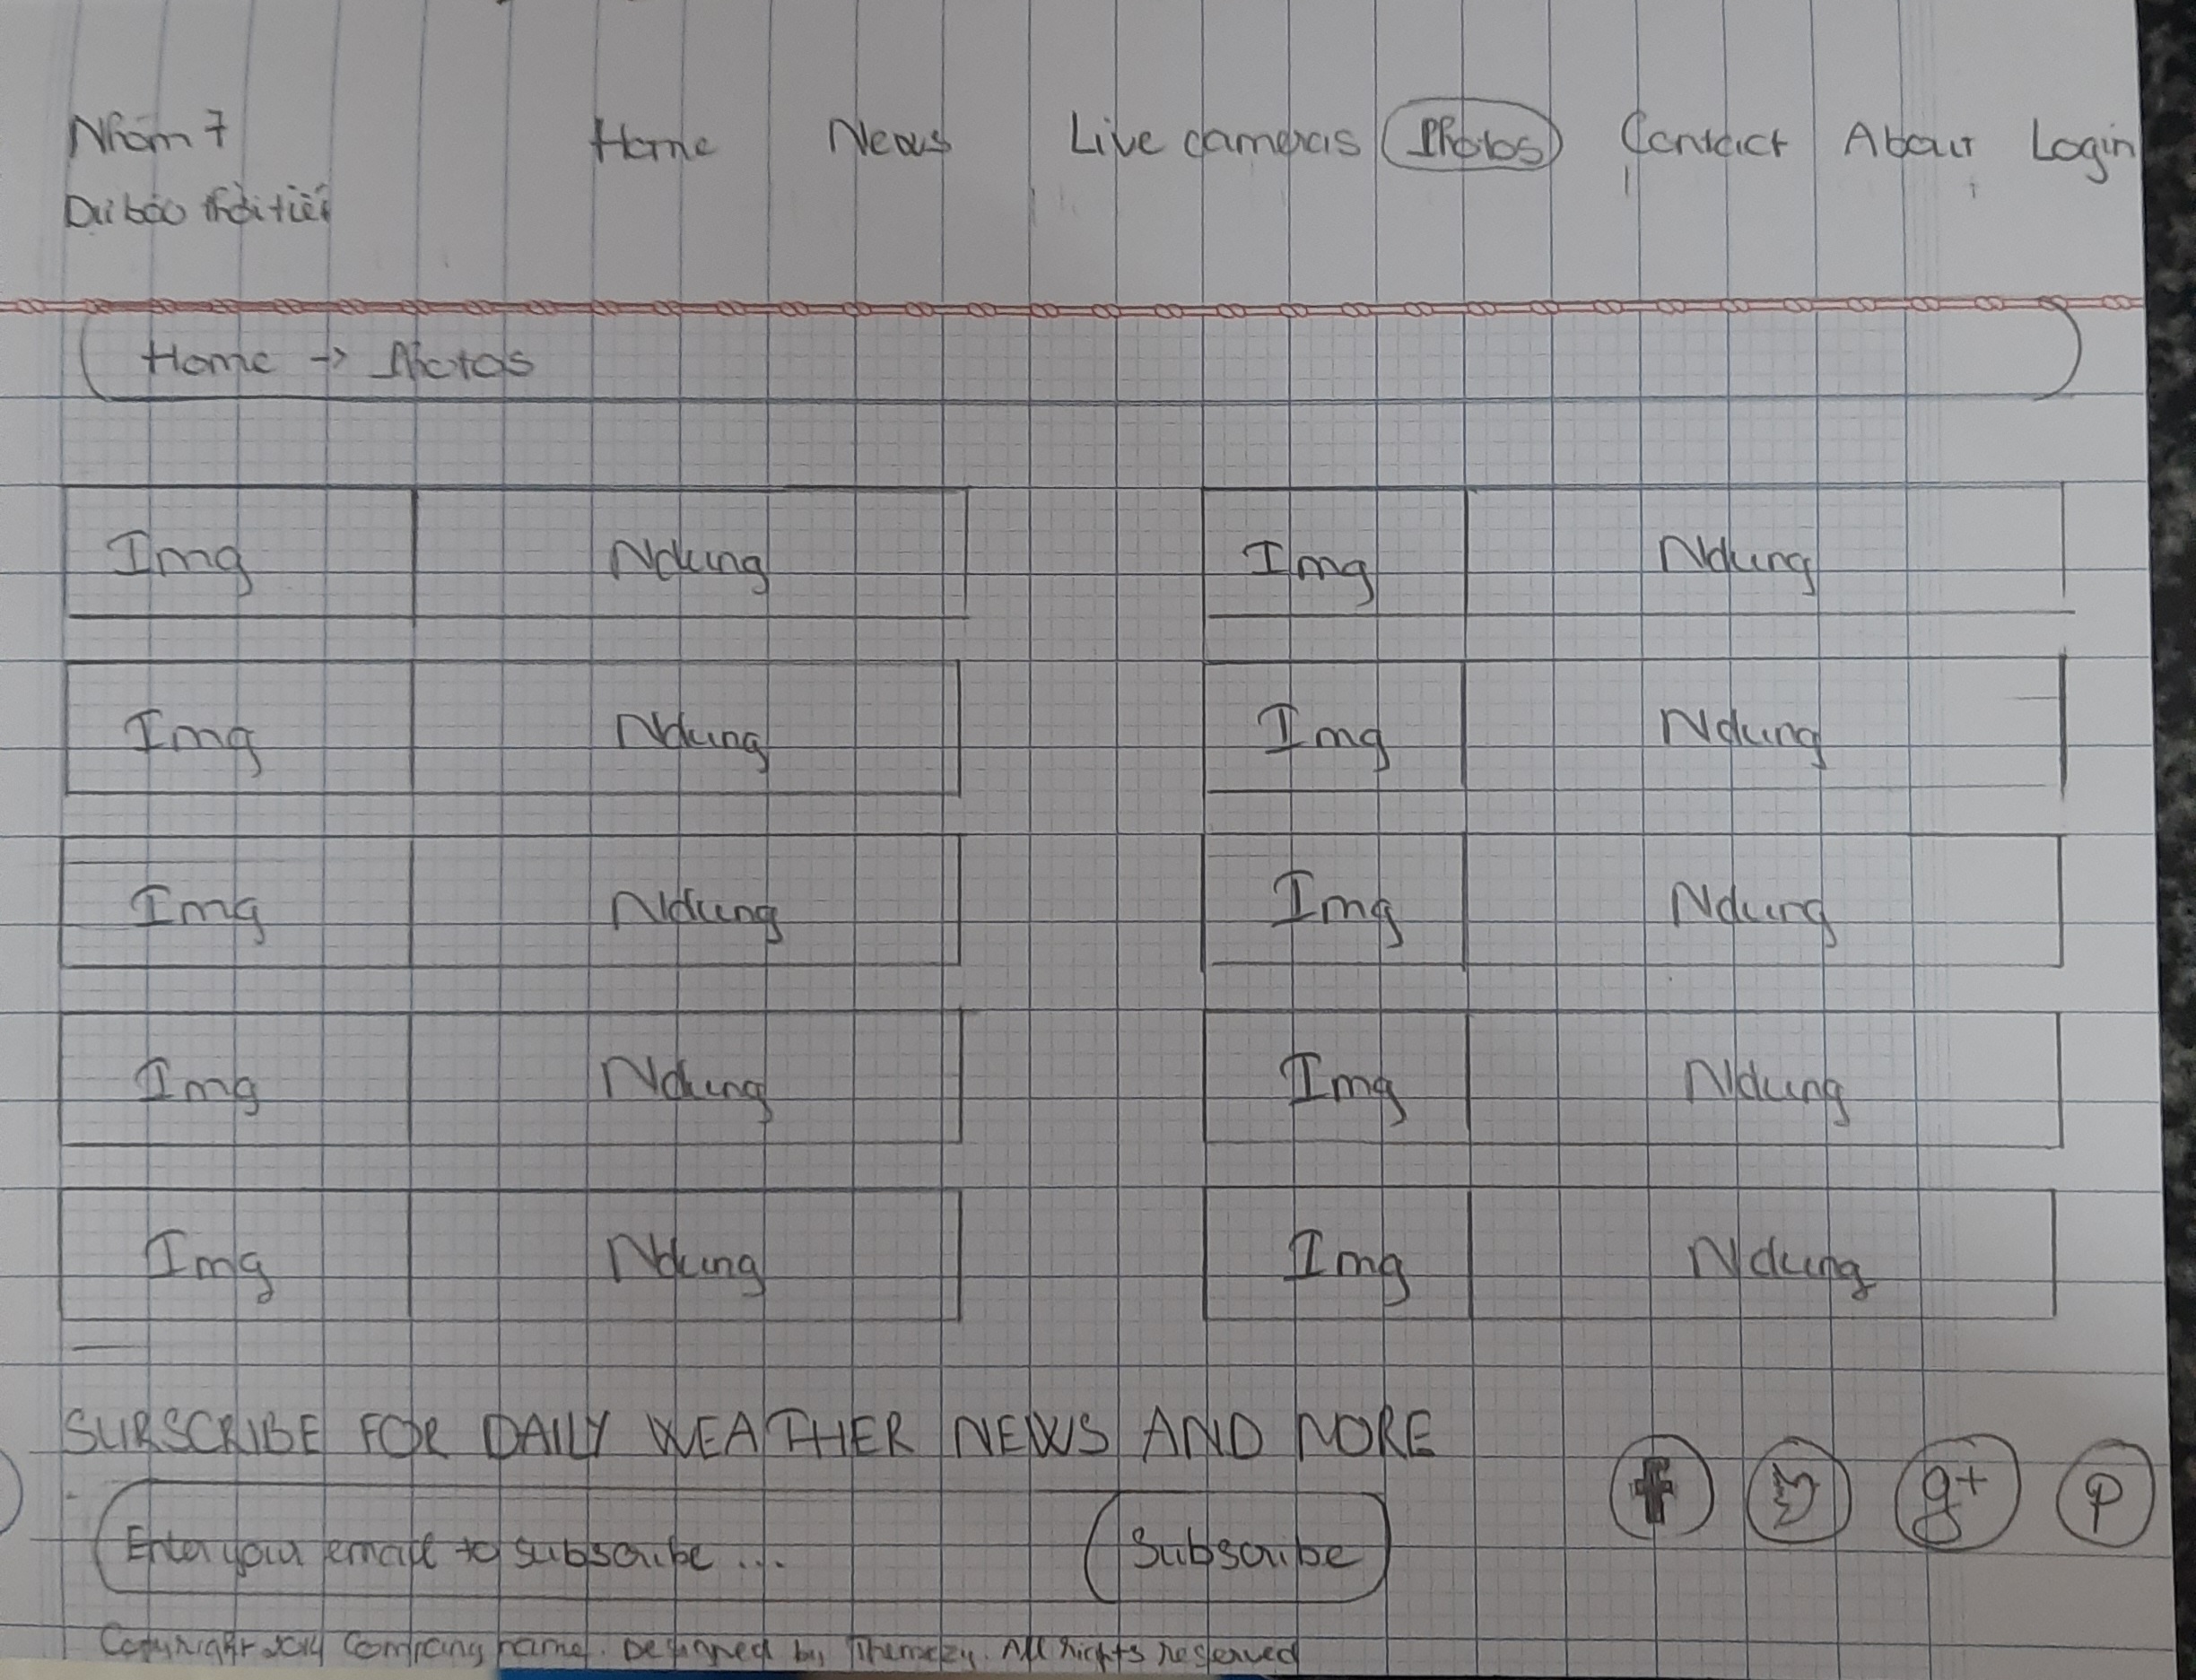 Nhóm 7 Home News Live cameras Photos Contact About Login
Dự báo thời tiết
Home → Photos
Img Ndung Img Ndung
Img Ndung Img Ndung
Img Ndung Img Ndung
Img Ndung Img Ndung
Img Ndung Img Ndung
SUBSCRIBE FOR DAILY WEATHER NEWS AND MORE
f g+ p
Enter your email to subscribe ... Subscribe
Copyright 2014 Company name. Designed by Themezy. All rights reserved